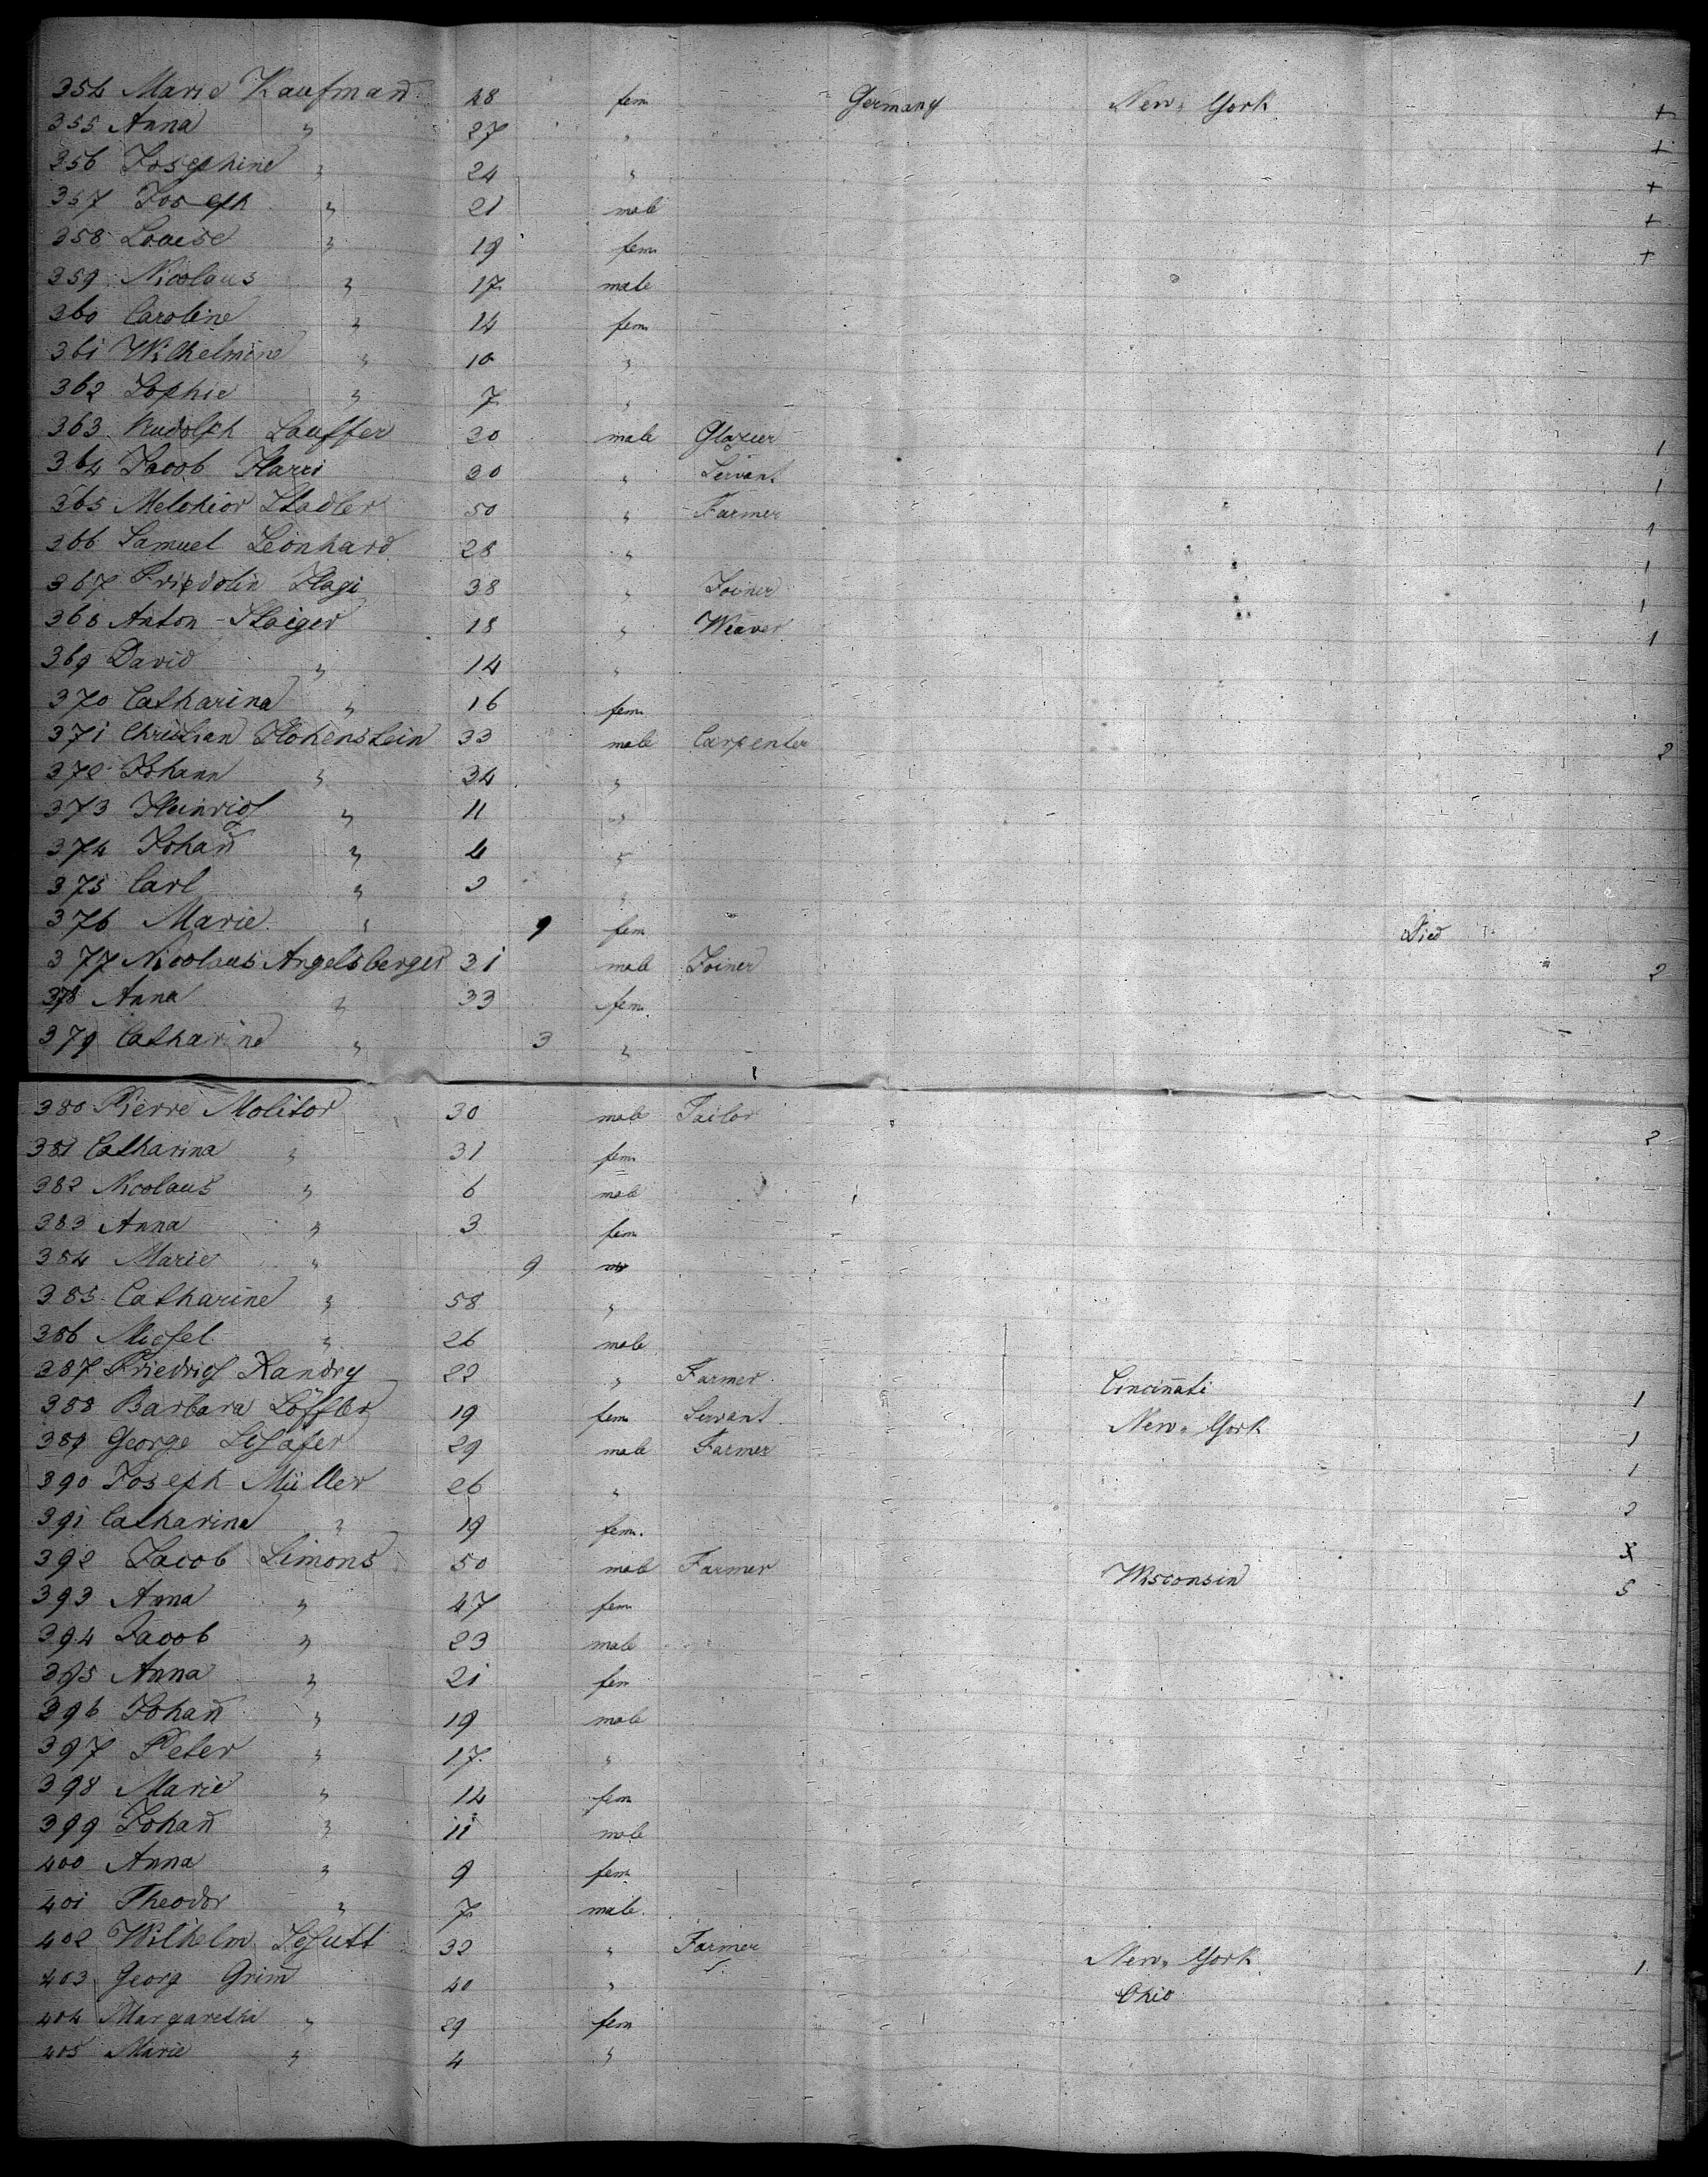 354 Marie Kaufman̅ 48 fem Germany New-York +
355 Anna " 27 " +
356 Josephine " 24 " +
357 Joseph " 21 male +
358 Louise " 19 fem +
359 Nicolaus " 17 male
360 Caroline " 14 fem
361 Wilhelmine " 10 "
362 Sophie " 7 "
363 Rudolph Lauffer 30 male Glazier 1
364 Jacob Harri 30 " Servant 1
365 Melchior Stadler 50 " Farmer 1
366 Samuel Leonhard 28 " 1
367 Fridolin Hagi 38 " Joiner 1
368 Anton Staiger 18 " Weaver 1
369 David " 14 "
370 Catharina " 16 fem
371 Christian Hohenstein 33 male Carpenter 2
372 Johann " 34 "
373 Heinrich " 11 "
374 Johan̅ " 4 "
375 Carl " 2 "
376 Marie " 9 fem Died
377 Nicolaus Angelsberger 31 male Joiner 2
378 Anna " 33 fem.
379 Catharine " 3 "
380 Pierre Molitor 30 male Tailor 2
381 Catharina " 31 fem
382 Nicolaus " 6 male
383 Anna " 3 fem
384 Marie " 9
385 Catharine " 58 "
386 Michel " 26 male
387 Friedrich Kandry 22 " Farmer Cincin̅ati 1
388 Barbara Löffler 19 fem Servant New-York 1
389 George Schäfer 29 male Farmer 1
390 Joseph Müller 26 " 2
391 Catharina " 19 fem.
392 Jacob Simons 50 male Farmer Wisconsin 5
393 Anna " 47 fem
394 Jacob " 23 male
395 Anna " 21 fem
396 Johan̅ " 19 male
397 Peter " 17 "
398 Marie " 14 fem
399 Johan̅ " 11 male
400 Anna " 9 fem
401 Theodor " 7 male
402 Wilhelm Schutt 32 " Farmer New-York 1
403 Georg Grim̅ 40 " Ohio
404 Margaretha " 29 fem
405 Marie " 4 "